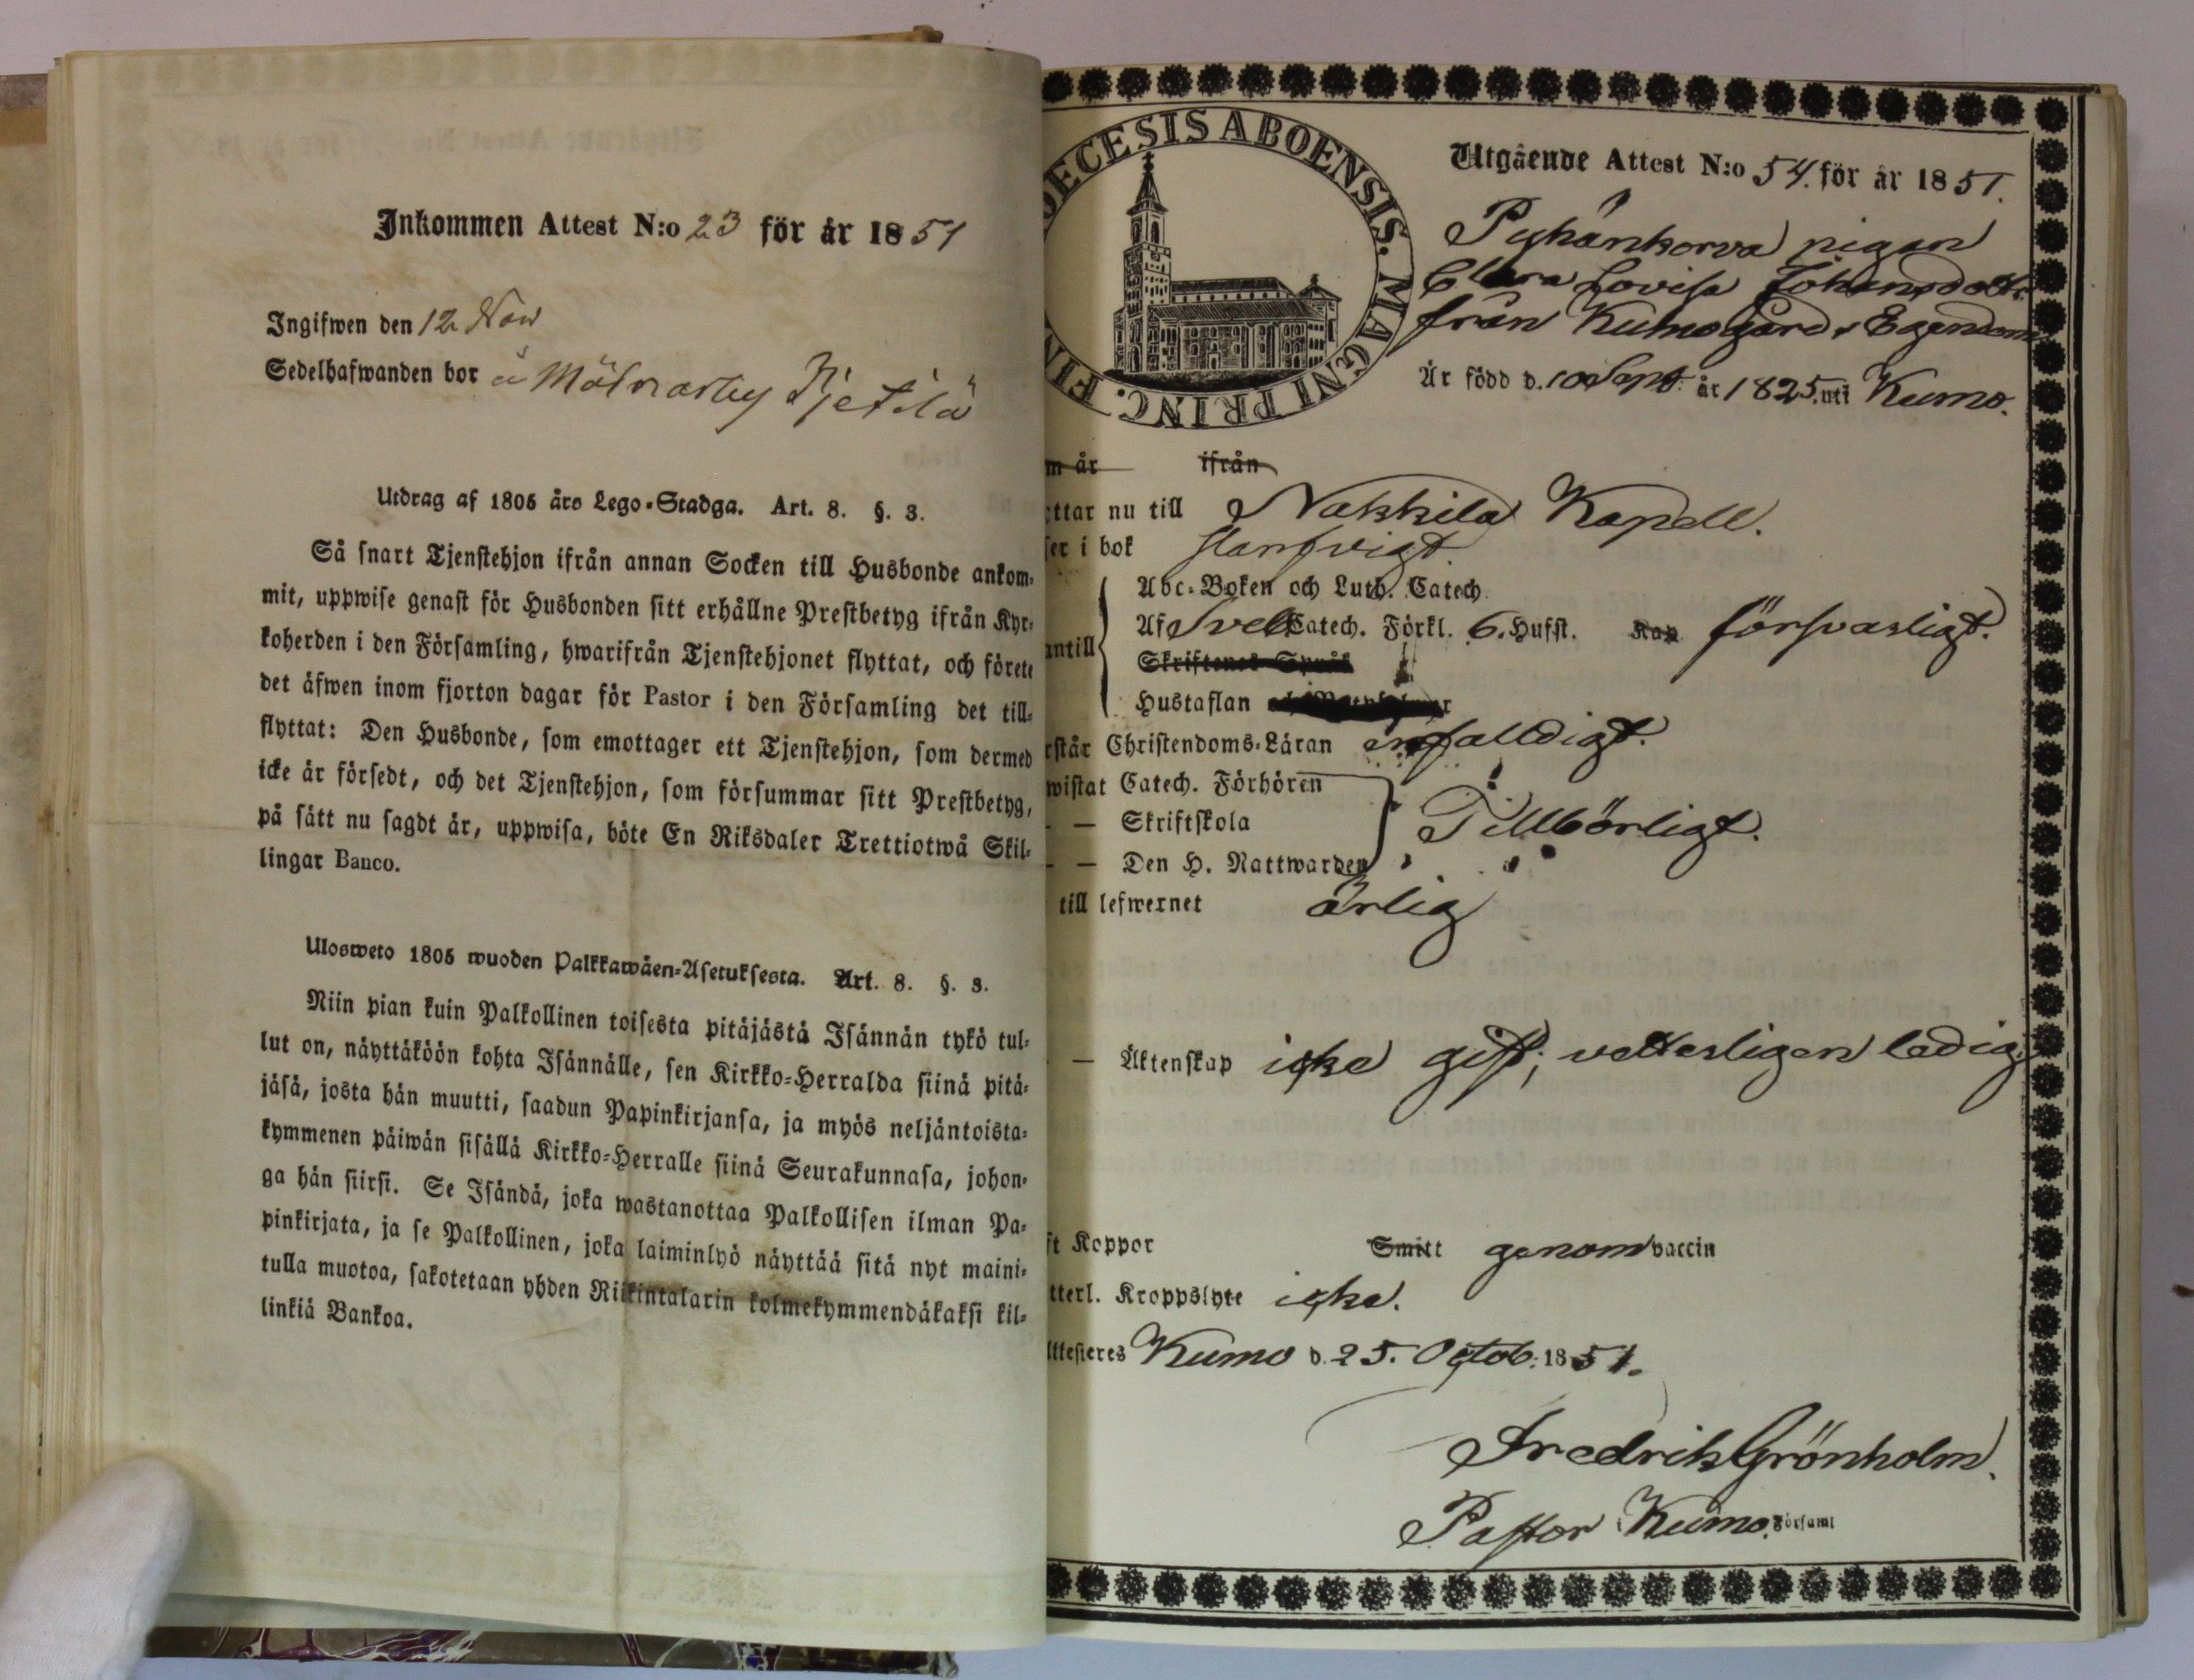 Inkommen Attest N:o 23 för år 1851
Ingifwen den 12 Nov
Sedelhafwanden bor å Mölnarby Kjetilä
Utdrag af 1805 års Lego-Stadga. Art. 8. §. 3.
Så snart Tjenstehjon ifrån annan Socken till Husbonde ankom-
mit, uppwise genast för Husbonden sitt erhållne Prestbetyg ifrån Kyr-
koherden i den Församling, hwarifrån Tjenstehjonet flyttat, och förete
det äfwen inom fjorton dagar för Pastor i den Församling det till-
flyttat: Den Husbonde, som emottager ett Tjenstehjon, som dermed
icke är försedt, och det Tjenstehjon, som försummar sitt Prestbetyg,
på sätt nu sagdt är, uppwisa, böte En Riksdaler Trettiotwå Skil-
lingar Banco.
Ulosweto 1805 wuoden Palkkawäen-Asetuksesta. Art. 8. §. 3.
Niin pian kuin Palkollinen toisesta pitäjästä Isännän tykö tul-
lut on, näyttäköön kohta Isännälle, sen Kirkko-Herralda siinä pitä-
jäsä, josta hän muutti, saadun Papinkirjansa, ja myös neljäntoista-
kymmenen päiwän sisällä Kirkko-Herralle siinä Seurakunnasa, johon-
ga hän siirsi. Se Isändä, joka wastanottaa Palkollisen ilman Pa-
pinkirjata, ja se Palkollinen, joka laiminlyö näyttää sitä nyt maini-
tulla muotoa, sakotetaan yhden Riikintalarin kolmekymmendäkaksi kil-
linkiä Bankoa.
DECESIS ABOENSIS. MAGNI PRINC. FIN
Utgående Attest N:o 54. för år 1851.
Pyhänkorva pigan
Clara Lovisa Johansdotter
från Kumogård Egendom
Är född d. 10 Sept. år 1825. uti Kumo.
m år ifrån
ttar nu till Nakkila Kapell.
ser i bok starfvigt
Abc-Boken och Luth. Catech.
antill Af Sveb Catech. Förkl. 6. Hufst. Kap försvarligt.
Skriftenes Språk
Hustaflan
rstår Christendoms-Läran enfalldigt.
wistat Catech. Förhören
- — Skriftskola Tillbörligt.
- — Den H. Nattwarden
till lefwernet ärlig
- — Äktenskap icke gift, vetterligen ledig.
ft Koppor Smitt genom vaccin
tterl. Kroppslyte icke.
Attesteres Kumo d. 25. Octob. 1851.
Fredrik Grönholm.
Pastor i Kumo. Församl